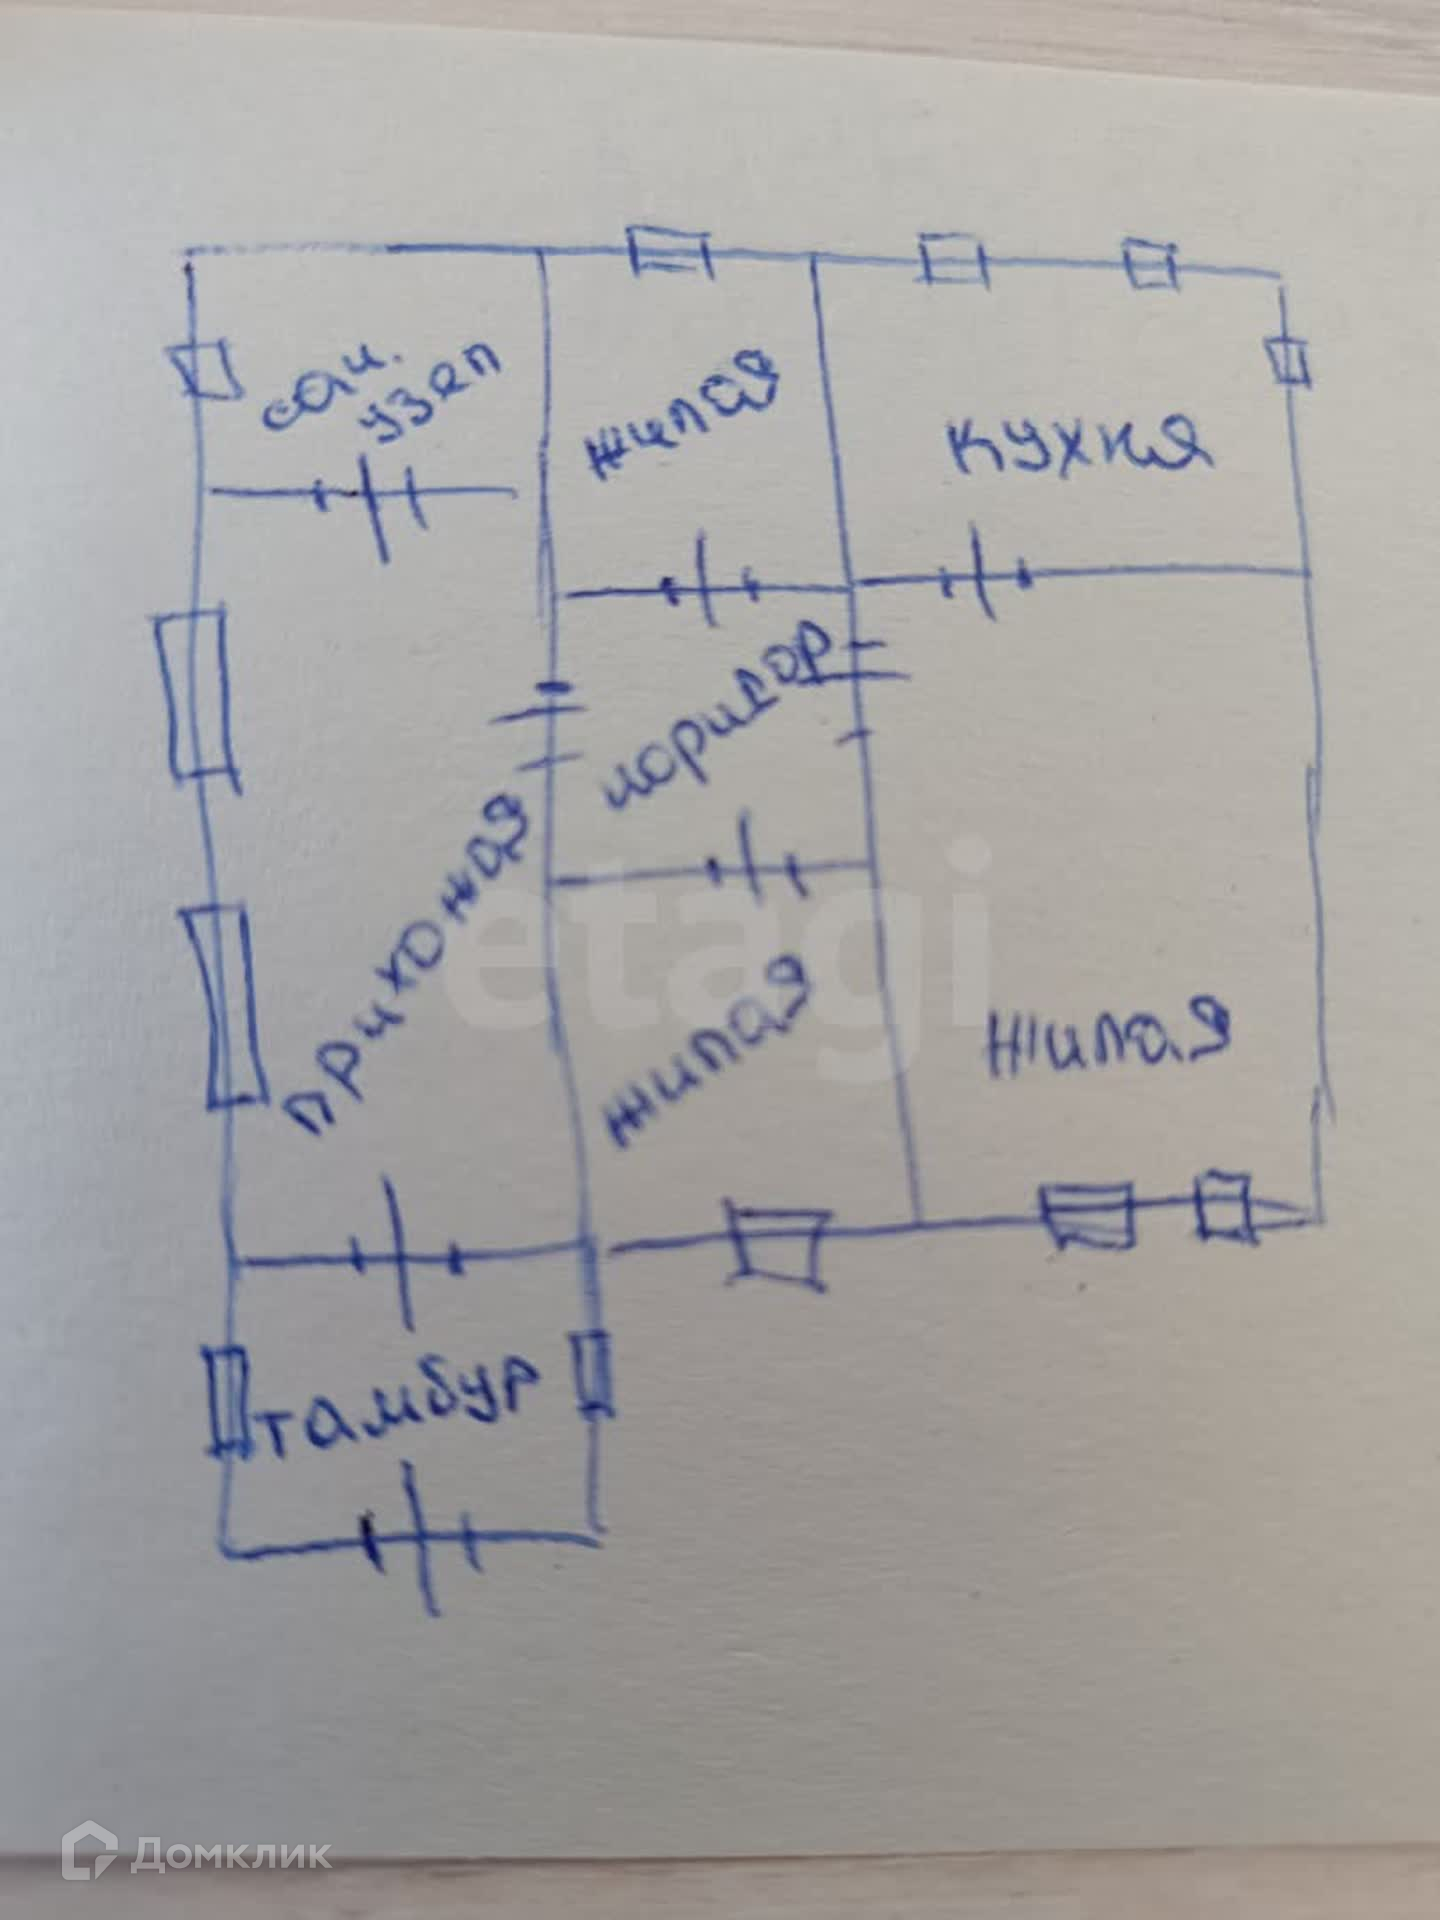 сан.
узел
жилая
кухня
коридор
прихожая
жилая
жилая
тамбур
etagi
Домклик